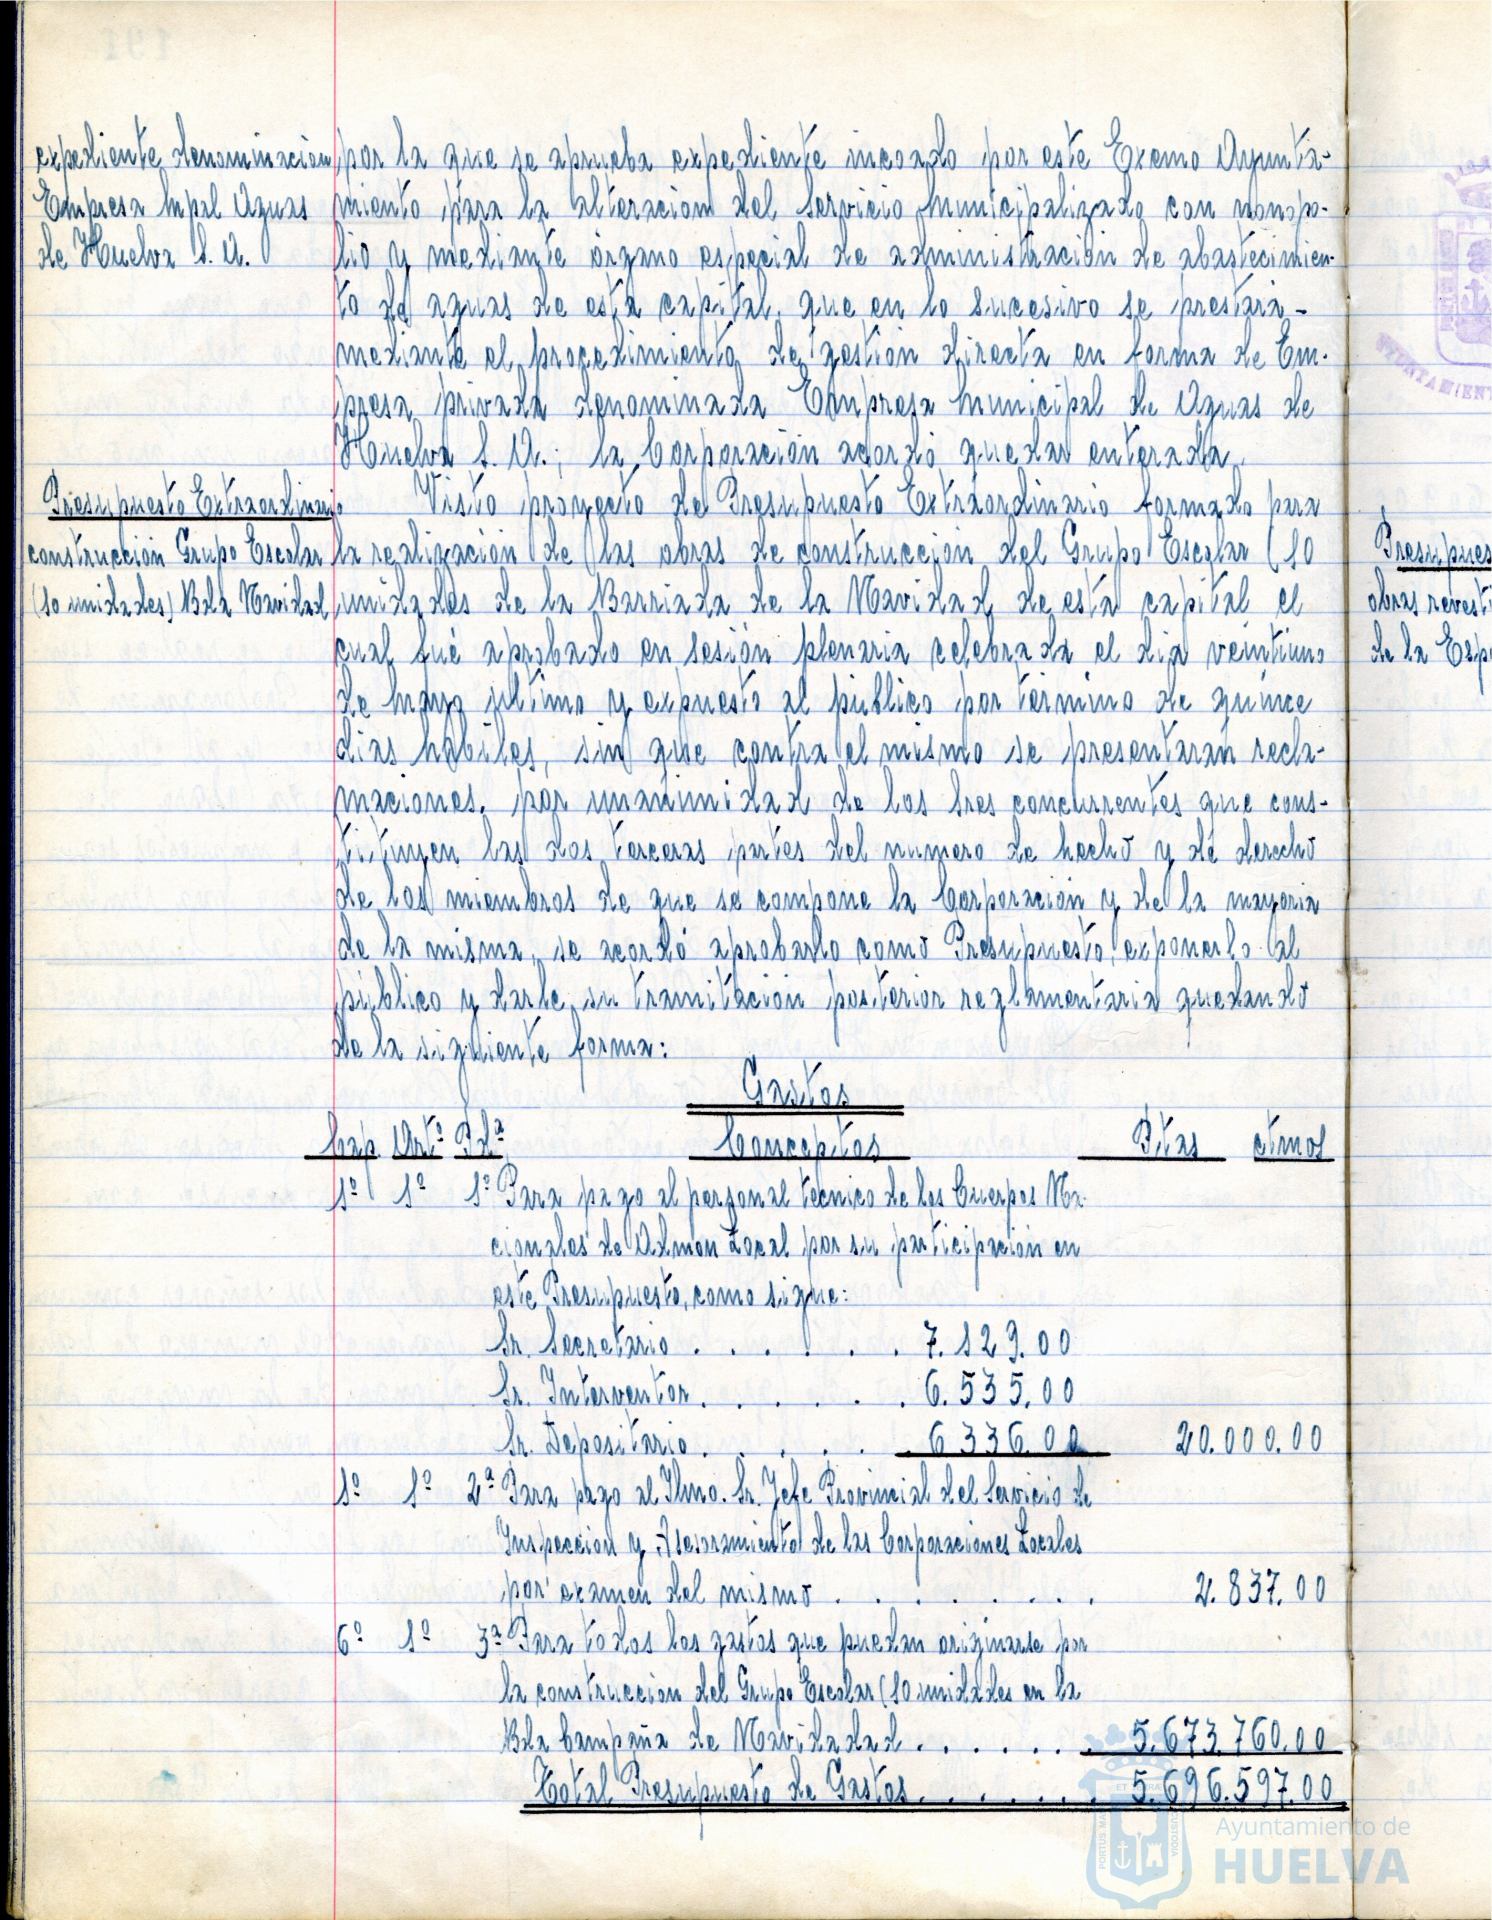 expediente denominacion
Empresa Mpal Aguas
de Huelva S. A.
por la que se aprueba expediente incoado por este Excmo Ayunta-
miento para la alteración del servicio municipalizado con monopo-
lio y mediante órgano especial de administración de abastecimien-
to de aguas de esta capital, que en lo sucesivo se prestará -
mediante el procedimiento de gestión directa en forma de Em-
presa privada denominada Empresa Municipal de Aguas de
Huelva S. A.; la Corporación acordó quedar enterada.
Presupuesto Extraordinario
construcción Grupo Escolar
(10 unidades) Bda Navidad
Visto proyecto de Presupuesto Extraordinario formado para
la realización de las obras de construcción del Grupo Escolar (10
unidades de la Barriada de la Navidad de esta capital el
cual fué aprobado en sesión plenaria celebrada el dia veintiuno
de mayo ultimo y expuesto al público por término de quince
dias hábiles, sin que contra el mismo se presentarán recla-
maciones, por unanimidad de los Sres concurrentes que cons-
tituyen las dos terceras partes del numero de hecho y de derecho
de los miembros de que se compone la Corporación y de la mayoria
de la misma, se acordó aprobarlo como Presupuesto, exponerlo al
público y darle su tramitación posterior reglamentaria quedando
de la siguiente forma:
Gastos
Cap. Artº Pdª Conceptos Ptas ctmos
1º 1º 1º Para pago al personal técnico de los Cuerpos Na-
cionales de Admon Local por su participación en
este Presupuesto, como sigue:
Sr. Secretario . . . . . . 7.129.00
Sr. Interventor . . . . . . 6.535.00
Sr. Depositario . . . . . . 6 336.00 20.000.00
1º 1º 2ª Para pago al Ilmo. Sr. Jefe Provincial del Servicio de
Inspección y Asesoramiento de las Corporaciones Locales
por examen del mismo . . . . . . . . 2.837.00
6º 1º 3ª Para todos los gastos que puedan originarse por
la construcción del Grupo Escolar (10 unidades en la
Bda Campaña de Navidadad . . . . . . 5.673.760.00
Total Presupuesto de Gastos . . . . . . 5.696.597.00
Presupues
obras revesti
de la Espe
AYUNTAMIEN
Ayuntamiento de
HUELVA